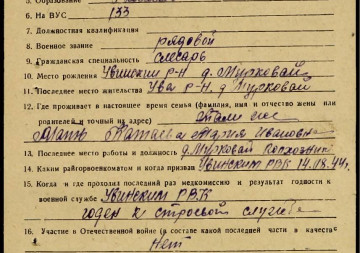 5. Образование
6. На ВУС 133
7. Должностная квалификация
8. Военное звание рядовой
9. Гражданская специальность слесарь
10. Место рождения Увинский р-н д. Мурковай
11. Последнее место жительства Ува р-н, д Мурковай
12. Где проживает в настоящее время семья (фамилия, имя и отчество жены или
родителей и точный их адрес)
Мать Мария Ивановна
13. Последнее место работы и должность д. Мурковай колхозник
14. Каким райгорвоенкоматом и когда призван Увинским РВК 14.08.44г.
15. Когда и где проходил последний раз медкомиссию и результат годности к
военной службе Увинским РВК
годен к строевой службе
16. Участие в Отечественной войне (в составе какой последней части в качестве
Нет